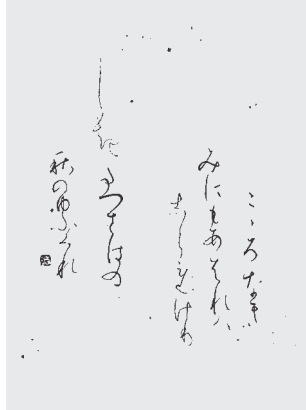 こゝろなき
みにもあはれハ
しられけり
しぎ
たつさはの
秋のゆふぐれ